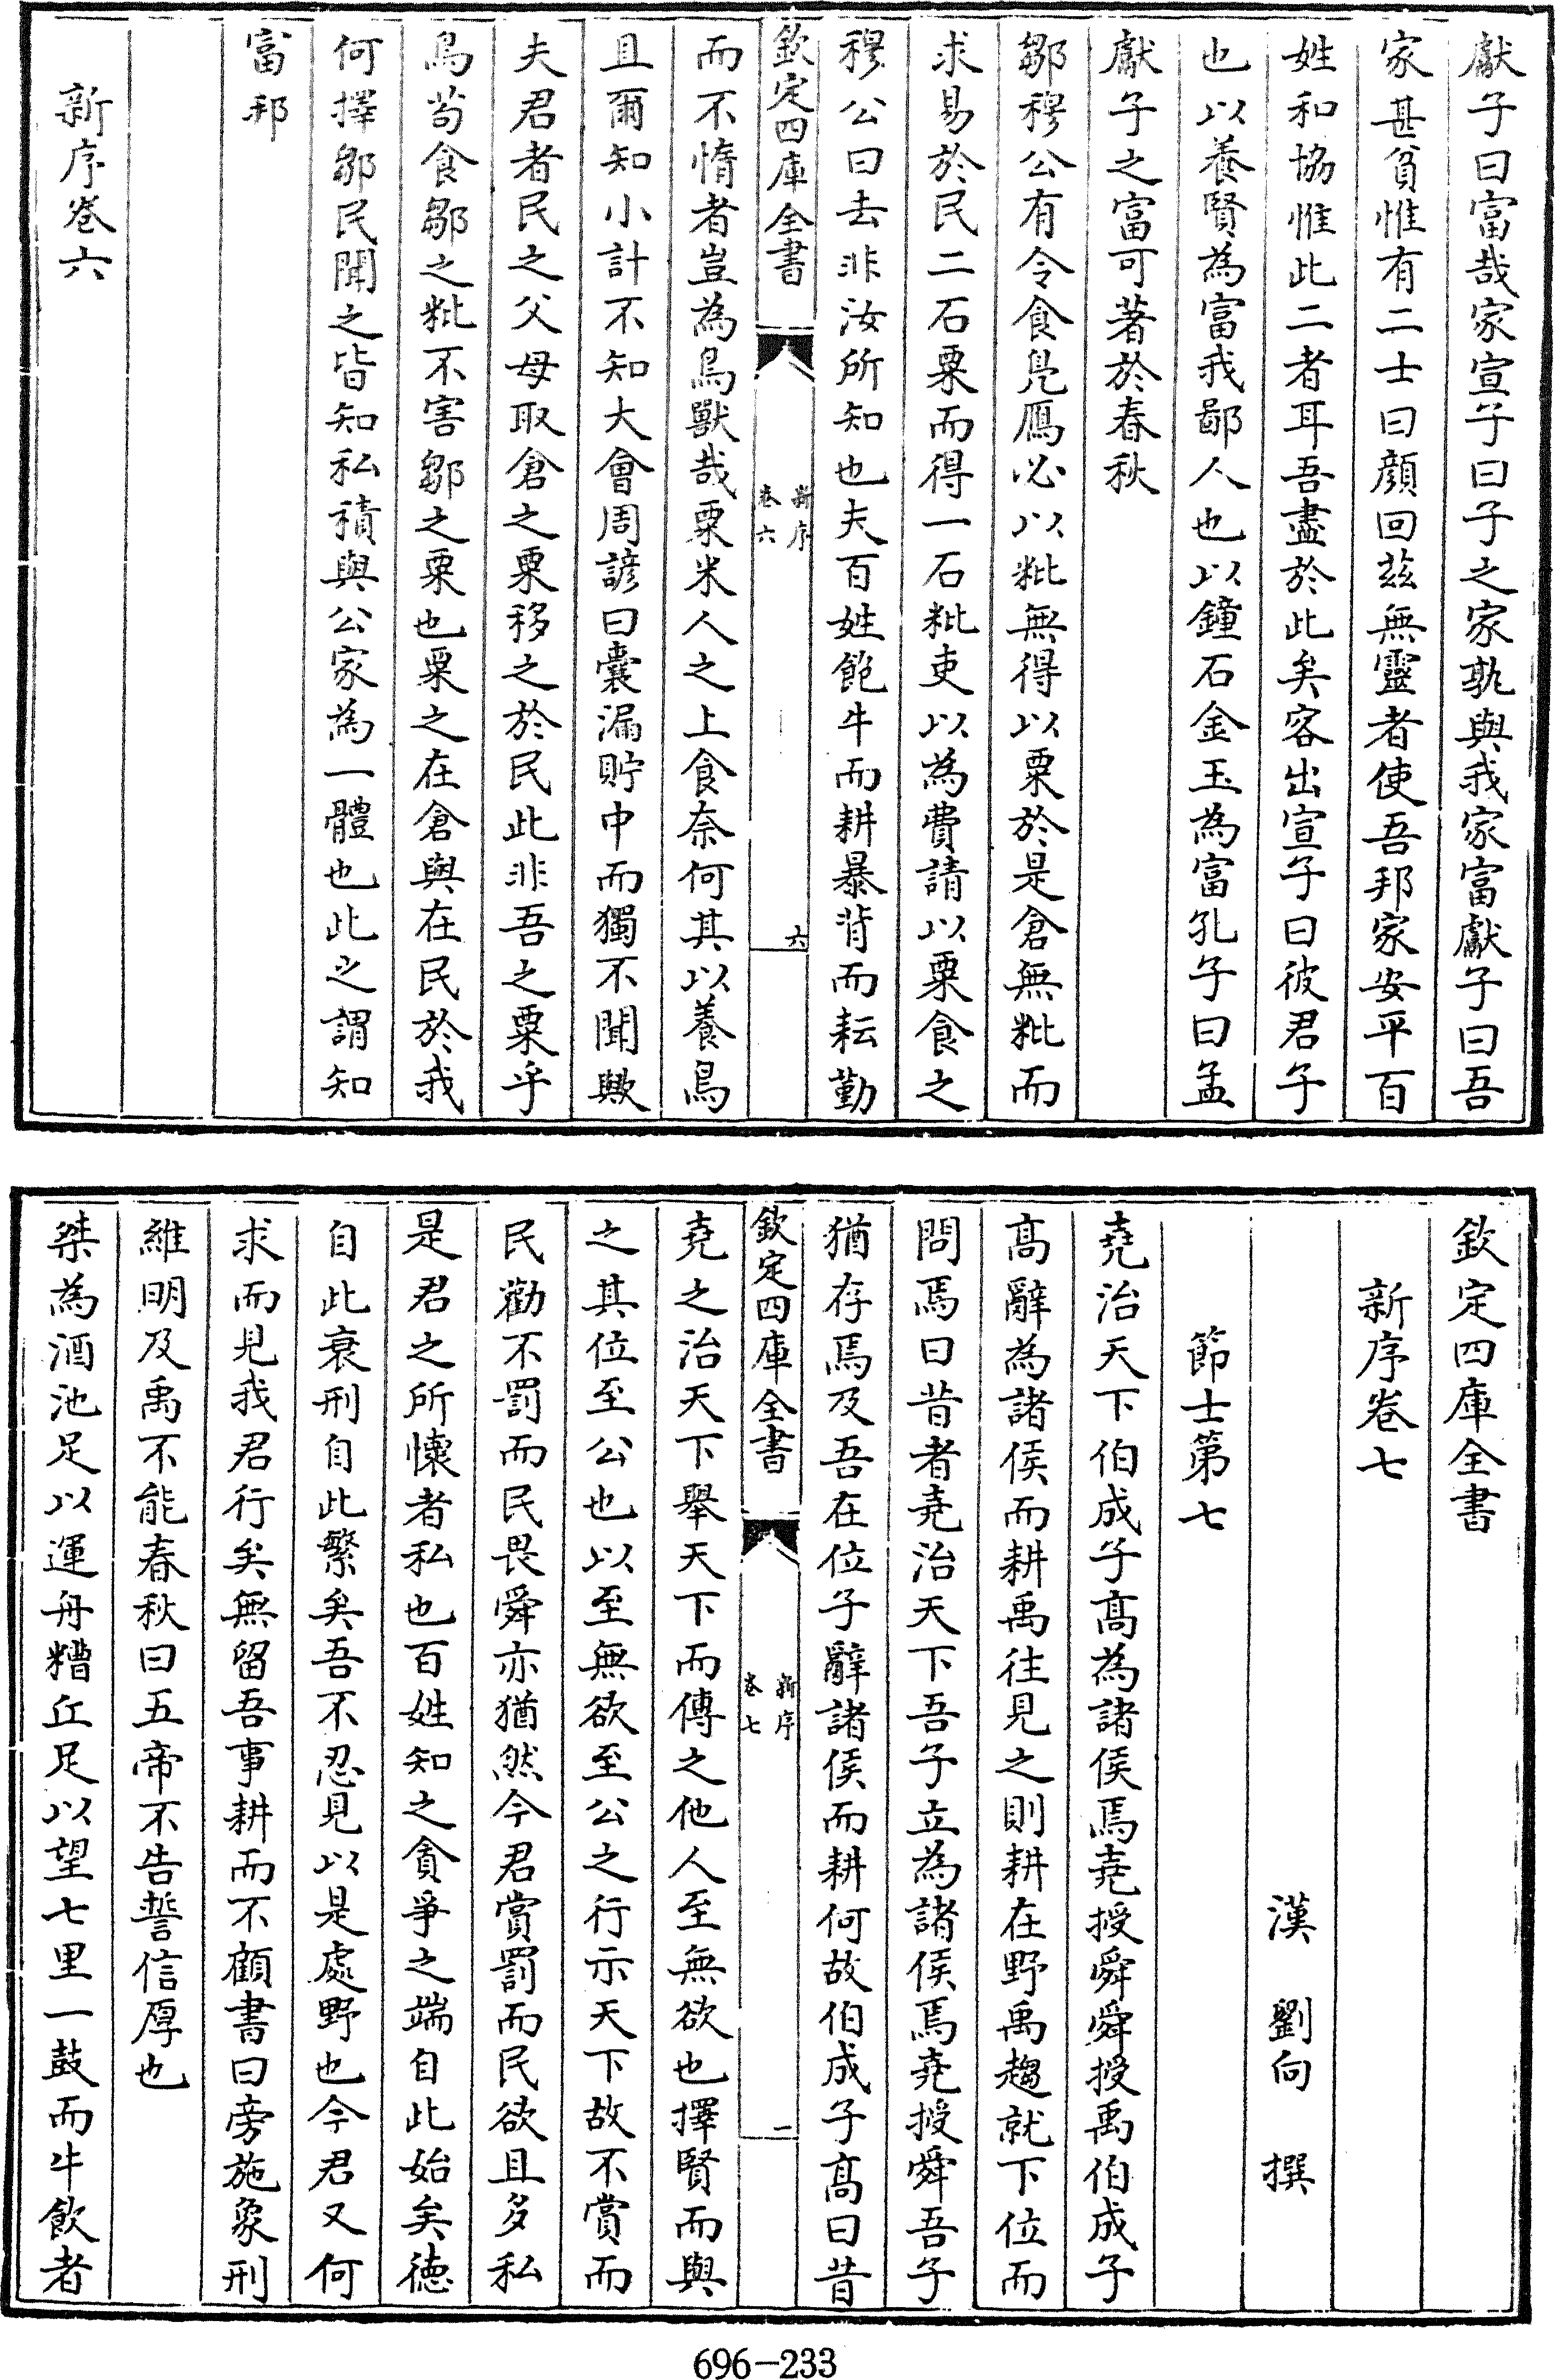 獻子曰富哉家宣子曰子之家孰與我家富獻子曰吾
家甚貧惟有二士曰顔回茲無靈者使吾邦家安平百
姓和協惟此二者耳吾盡於此矣客出宣子曰彼君子
也以養賢為富我鄙人也以鐘石金玉為富孔子曰孟
獻子之富可著於春秋
鄒穆公有令食鳧鴈必以粃無得以粟於是倉無粃而
求易於民二石粟而得一石粃吏以為費請以粟食之
穆公曰去非汝所知也夫百姓飽牛而耕暴背而耘勤
欽定四庫全書
新序
卷六
六
而不惰者豈為鳥獸哉粟米人之上食奈何其以養鳥
且爾知小計不知大會周諺曰囊漏貯中而獨不聞歟
夫君者民之父母取倉之粟移之於民此非吾之粟乎
鳥茍食鄒之粃不害鄒之粟也粟之在倉與在民於我
何擇鄒民聞之皆知私積與公家為一體也此之謂知
富邦
新序卷六
欽定四庫全書
新序卷七
漢 劉向 撰
節士第七
堯治天下伯成子髙為諸侯焉堯授舜舜授禹伯成子
髙辭為諸侯而耕禹往見之則耕在野禹趨就下位而
問焉曰昔者堯治天下吾子立為諸侯焉堯授舜吾子
猶存焉及吾在位子辭諸侯而耕何故伯成子髙曰昔
欽定四庫全書
新序
卷七
一
堯之治天下舉天下而傳之他人至無欲也擇賢而與
之其位至公也以至無欲至公之行示天下故不賞而
民勸不罰而民畏舜亦猶然今君賞罰而民欲且多私
是君之所懷者私也百姓知之貪爭之端自此始矣德
自此衰刑自此繁矣吾不忍見以是處野也今君又何
求而見我君行矣無留吾事耕而不顧書曰旁施象刑
維明及禹不能春秋曰五帝不告誓信厚也
桀為酒池足以運舟糟丘足以望七里一鼓而牛飲者
696-233